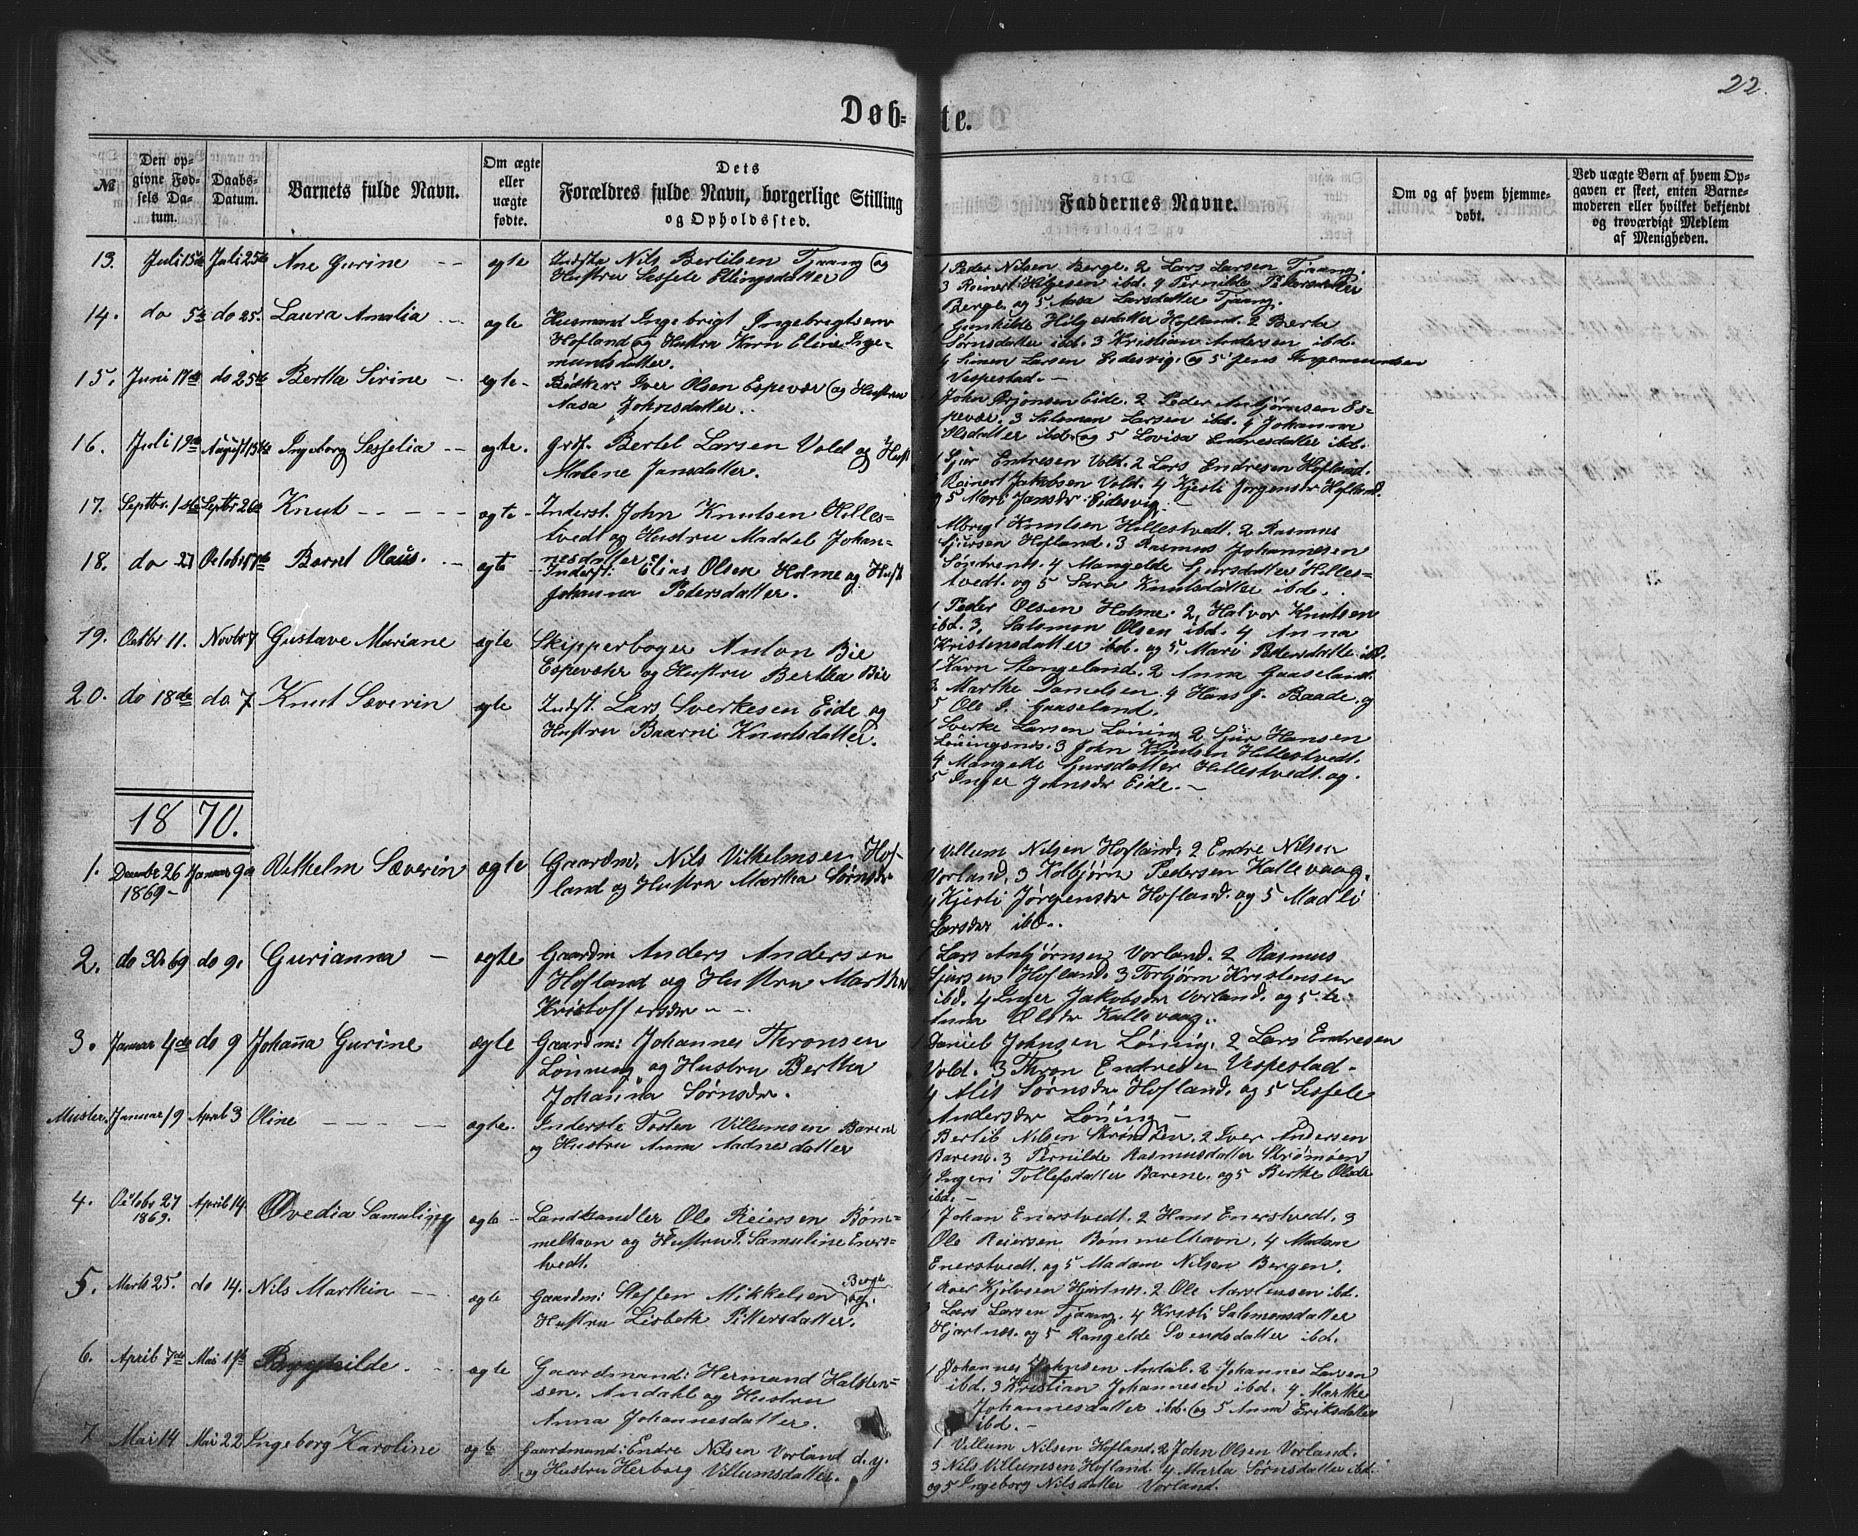 22.
Døb- te.
№
Den op-
givne Fød-
sels Da-
tum.
Daabs-
Datum.
Barnets fulde Navn.
Om ægte
eller
uægte
fødte.
Dets
Forældres fulde Navn, borgerlige Stilling
og Opholdssted.
Faddernes Navne.
Om og af hvem hjemme-
døbt.
Ved uægte Børn af hvem Op-
gaven er skeet, enten Barne-
moderen eller hvilket bekjendt
og troværdigt Medlem
af Menigheden.
13. Juli 15de Juli 25de Ane Gurine - - egte Inderste Nils Bertilsen Tjaang og
Hustru Sesfele Ellingsdatter
1 Peder Nilsen Berge. 2 Lars Larsen Tjaang.
3 Reinert Helgesen ibd. 4 Pernilde Petersdatter
Berge og 5 Aasa Larsdatter Tjaang.
14. do 5te do 25. Laura Amalia - - egte Husmand Ingebrigt Ingebrigtsen
Hofland og Hustru Karn Eline Inge-
mundsdatter.
1 Gunhilde Helgesdatter Hofland. 2 Berta
Sørnsdatter ibd. 3 Kristian Andersen ibd.
4 Simen Larsen Eidesvig. og 5 Jens Ingemundsen
Vespestad. -
15. Juni 17de do 25de Bertha Sirine - egte - Iver Olsen Espevær og Hustru
Aasa Johnsdatter.
John Bjønsen Eide. 2 Peder Anbjørnsen Es-
pevær. 3 Salomon Larsen ibd. 4 Johanna
Olsdatter ibd. og 5 Lovisa Endresdatter ibd.
16. Juli 19de August 15de Ingeborg Sesfelia - - egte. Grdr. Bertel Larsen Vold og Hust
Malene Jansdatter.
1 Sjur Endresen Vold. 2 Lars Endresen Hofland.
Reinert Jakobsen Vold. 4 Kjesti Jørgensdr Hofland.
og 5 Mari Jansdr Eidesvig. -
17. Septbr. 1ste Septbr 26de Knut - - - - - egte - Inderst. John Knutsen Hilles-
tvedt og Hustru Maddel Johan-
nesdatter.
Albrigt Knutsen Hillestvedt. 2 Rasmus
Sjursen Hofland. 3 Rasmus Johannesen
Søndrenes. 4 Mangelde Sjursdatter Hilles-
tvedt. og 5 Sara Knutsdatter ibd.
18. do 27 October 17de Bernt Olaus. - - egte - Inderst: Elias Olsen Holme og Hust
Johanna Petersdatter.
1 Peder Olsen Holme. 2, Halvor Knutsen
ibd. 3, Salomon Olsen ibd. 4 Anna
Kristensdatter ibd. og 5. Mari Pedersdatter ibd.
19. Octbr 11. Novbr 7 Gustave Mariane egte Skipperborger Anton Bie
Espevær og Hustru Bertha Bie
1 Karn Stangeland. 2 Anna Gaaseland.
3. Marthe Danielsen. 4 Hans J. Baade. og
5 Ole I. Gaaseland.
20. do 18de do 7 Knut Sæverin egte Indst. Lars Sverkesen Eide og
Hustru Baarni Knutsdatter.
1 Sverke Larsen Løning 2 Sjur Hansen
Løningsnes. 3 John Knutsen Hillestvedt.
4 Mangelde Sjursdatter Hillestvedt. og
5 Inger Jonsdr Eide. -
1870.
1. December 26 Januar 9de Vilhelm Sæverin egte Gaardm. Nils Vilhelmsen Hof-
1869 - land og Hustru Martha Sørnsdr
1 Villum Nilsen Hofland. 2 Endre Nilsen
Vorland. 3 Kolbjørn Pedersen Kallevaag.
4 Kjersti Jørgensdr Hofland. og 5 Madli
Larsdr ibd..
2. do 30. 69 do 9. Gurianna - egte Gaardm Anders Andersen
Hofland og Hustru Martha
Kristoffersdr - -
1 Lars Anbjørnsen Vorland. 2 Rasmus
Sjursen Hofland. 3 Torbjørn Kristensen
ibd. 4 Inger Jakobsdr Vorland. og 5te
Anna Olsdr Kallevaag.
3. Januar 4de do 9 Johanna Gurine egte Gaardm: Johannes Thronsen
Lønning og Hustru Bertha
Johanna Sørnsdr.
1 Daniel Johnsen Løning. 2 Lars Endresen
Vold. 3 Thron Endresen Vespestad.
4 Alis Sørnsdr Hofland. og 5 Sesfele
Andersdr Løning -
Muster. Januar 19 April 3 Oline - - - - - egte. Inderste Tosten Villumsen Barene
og Hustru Anna Aadnesdatter
1 Bertil Nilsen Strømøen. 2 Iver Andersen
Barene. 3 Pernilde Rasmusdatter Strømøen
4 Ingeri Tollefsdatter Barene. og 5 Berthe Olsdr
ibd. -
4. Octobr 27 April 14. Ovedia Samuline egte - Landhandler Ole Reiersen Bøm-
1869. melhavn og Hustru P. Samuline Eners-
tvedt.
1 Johan Enerstvedt. 2 Hans Enerstvedt. 3
Ole Reiersen Bømmelhavn. 4 Madam
Enerstvedt. og 5 Madam Nilsen Bergen.
5. Marts 25. do 14. Nils Marthin - - egte Gaardm: Steffen Mikkelsen Berge og
Hustru Lisbeth Pittersdatter.
1 Roer Kjølvsen Hjartnæs. 2 Ole Aarstensen ibd.
3 Lars Larsen Tjaang. 4 Kristi Salomonsdatter
Hjartnes. og 5 Rangelde Svendsdatter ibd.
6. April 7de Mai 1ste - - egte Gaardmand: Hermand Halsten-
sen. Andahl og Hustru
Anna Johannesdatter.
1 Johannes Johnsen Andal. 2 Johannes Larsen
ibd. 3 Kristian Johannesen ibd. 4 Marthe
Johannesdatter ibd. og 5 Anna Eriksdatter
ibd. -
7. Mai 14 Mai 22 Ingeborg Karoline egte Gaardmand: Endre Nilsen Vorland d. y.
og Hustru Herborg Villumsdatter.
1 Villum Nilsen Hofland. 2 John Olsen Vorland.
3 Nils Villumsen Hofland. 4 Marta Sørnsdatter ibd.
og 5 Ingeborg Nilsdatter Vorland.